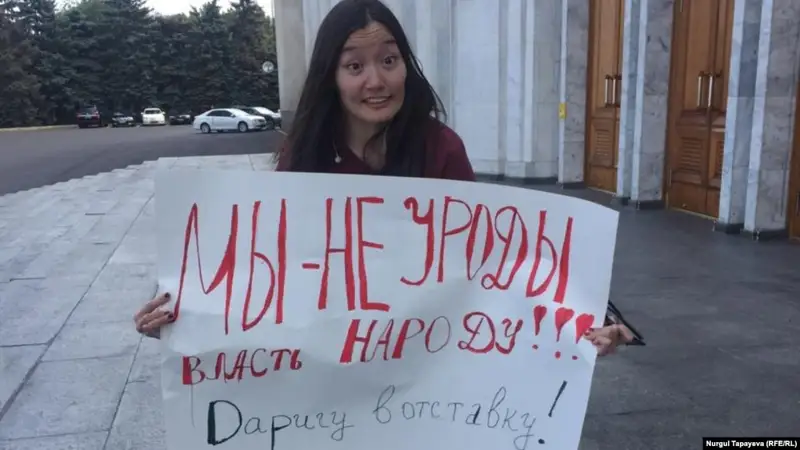 МЫ - НЕ УРОДЫ
ВЛАСТЬ НАРОДУ!!!
Даригу в отставку!
Nurgul Tapayeva (RFE/RL)